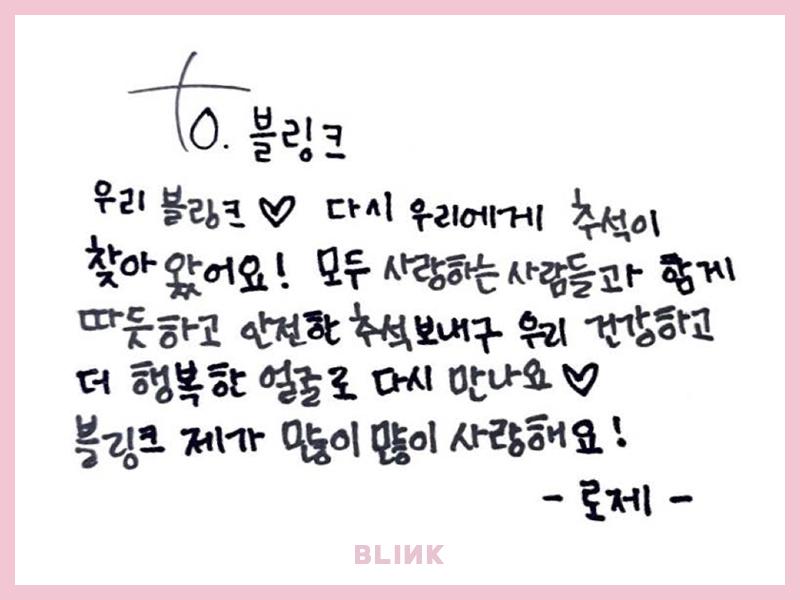 to. 블링크
우리 블링크 ♡ 다시 우리에게 추석이
찾아 왔어요! 모두 사랑하는 사람들과 함께
따듯하고 안전한 추석보내구 우리 건강하고
더 행복한 얼굴로 다시 만나요 ♡
블링크 제가 많이 많이 사랑해요!
- 로제 -
BLINK